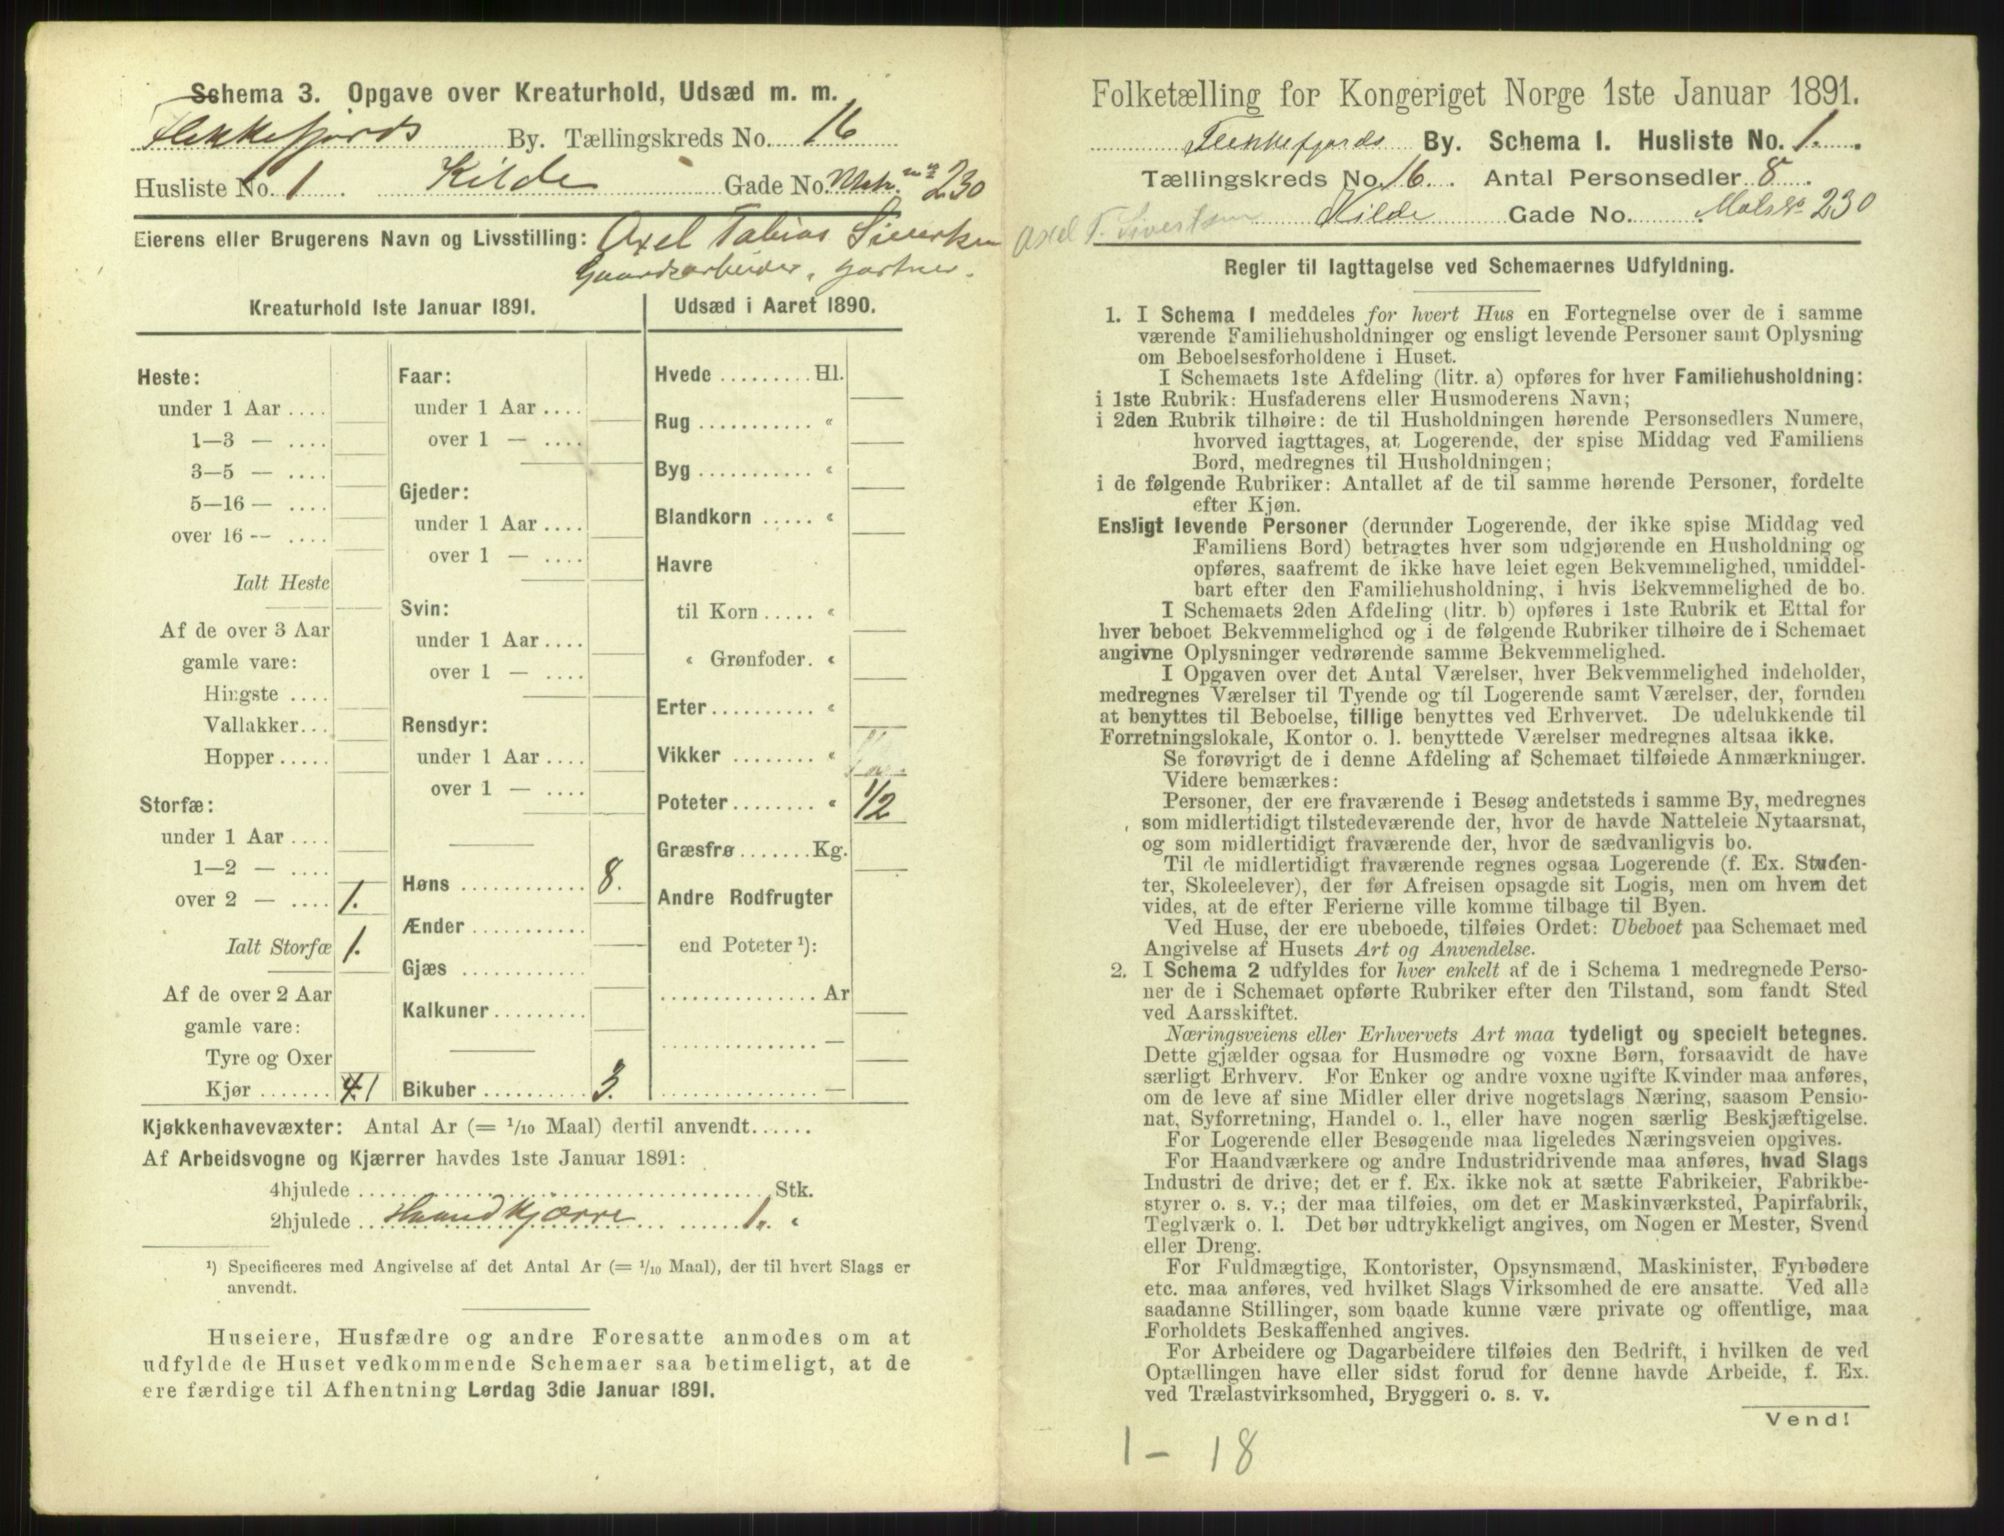 Schema 3. Opgave over Kreaturhold, Udsæd m. m.
Flekkefjords By. Tællingskreds No. 16
Husliste No. 1 Kilde Gade No. Mtr. no 230
Eierens eller Brugerens Navn og Livsstilling: Axel Tobias Siversen
Gaardsarbeider, gartner.
Kreaturhold 1ste Januar 1891.
Heste:
under 1 Aar ....
1—3 — ....
3—5 — ....
5—16 — ....
over 16 -- ....
Ialt Heste
Af de over 3 Aar
gamle vare:
Hingste ....
Vallakker...
Hopper .....
Storfæ:
under 1 Aar ....
1—2 — ....
over 2 — .... 1.
Ialt Storfæ 1.
Af de over 2 Aar
gamle vare:
Tyre og Oxer
Kjør ....... 1
Faar:
under 1 Aar ....
over 1 — ....
Gjeder:
under 1 Aar ....
over 1 — ....
Svin:
under 1 Aar ....
over 1 — ....
Rensdyr:
under 1 Aar ....
over 1 — ....
Høns ............ 8.
Ænder ...........
Gjæs ............
Kalkuner..........
Bikuber .......... 3.
Udsæd i Aaret 1890.
Hvede ......... Hl.
Rug .......... "
Byg .......... "
Blandkorn ..... "
Havre
til Korn ..... "
" Grønfoder. "
Erter.......... "
Vikker ........ "
Poteter........ " 1/2
Græsfrø ....... Kg.
Andre Rodfrugter
end Poteter ¹):
............... Ar
............... —
............... —
Kjøkkenhavevæxter: Antal Ar (= 1/10 Maal) dertil anvendt......
Af Arbeidsvogne og Kjærrer havdes 1ste Januar 1891:
4hjulede ........................................ Stk.
2hjulede ... Haandkjærre ...... 1. "
¹) Specificeres med Angivelse af det Antal Ar (= 1/10 Maal), der til hvert Slags er
anvendt.
Huseiere, Husfædre og andre Foresatte anmodes om at
udfylde de Huset vedkommende Schemaer saa betimeligt, at de
ere færdige til Afhentning Lørdag 3die Januar 1891.
Folketælling for Kongeriget Norge 1ste Januar 1891.
Flekkefjords By. Schema I. Husliste No. 1.
Tællingskreds No. 16. Antal Personsedler 8.
Axel T. Sivertsen Kilde Gade No. 230
Regler til Iagttagelse ved Schemaernes Udfyldning.
1. I Schema 1 meddeles for hvert Hus en Fortegnelse over de i samme
værende Familiehusholdninger og ensligt levende Personer samt Oplysning
om Beboelsesforholdene i Huset.
I Schemaets 1ste Afdeling (litr. a) opføres for hver Familiehusholdning:
i 1ste Rubrik: Husfaderens eller Husmoderens Navn;
i 2den Rubrik tilhøire: de til Husholdningen hørende Personsedlers Numere,
hvorved iagttages, at Logerende, der spise Middag ved Familiens
Bord, medregnes til Husholdningen;
i de følgende Rubriker: Antallet af de til samme hørende Personer, fordelte
efter Kjøn.
Ensligt levende Personer (derunder Logerende, der ikke spise Middag ved
Familiens Bord) betragtes hver som udgjørende en Husholdning og
opføres, saafremt de ikke have leiet egen Bekvemmelighed, umiddel-
bart efter den Familiehusholdning, i hvis Bekvemmelighed de bo.
I Schemaets 2den Afdeling (litr. b) opføres i 1ste Rubrik et Ettal for
hver beboet Bekvemmelighed og i de følgende Rubriker tilhøire de i Schemaet
angivne Oplysninger vedrørende samme Bekvemmelighed.
I Opgaven over det Antal Værelser, hver Bekvemmelighed indeholder,
medregnes Værelser til Tyende og til Logerende samt Værelser, der, foruden
at benyttes til Beboelse, tillige benyttes ved Erhvervet. De udelukkende til
Forretningslokale, Kontor o. l. benyttede Værelser medregnes altsaa ikke.
Se forøvrigt de i denne Afdeling af Schemaet tilføiede Anmærkninger.
Videre bemærkes:
Personer, der ere fraværende i Besøg andetsteds i samme By, medregnes
som midlertidigt tilstedeværende der, hvor de havde Natteleie Nytaarsnat,
og som midlertidigt fraværende der, hvor de sædvanligvis bo.
Til de midlertidigt fraværende regnes ogsaa Logerende (f. Ex. Studen-
ter, Skoleelever), der før Afreisen opsagde sit Logis, men om hvem det
vides, at de efter Ferierne ville komme tilbage til Byen.
Ved Huse, der ere ubeboede, tilføies Ordet: Ubeboet paa Schemaet med
Angivelse af Husets Art og Anvendelse.
2. I Schema 2 udfyldes for hver enkelt af de i Schema 1 medregnede Perso-
ner de i Schemaet opførte Rubriker efter den Tilstand, som fandt Sted
ved Aarsskiftet.
Næringsveiens eller Erhvervets Art maa tydeligt og specielt betegnes.
Dette gjælder ogsaa for Husmødre og voxne Børn, forsaavidt de have
særligt Erhverv. For Enker og andre voxne ugifte Kvinder maa anføres,
om de leve af sine Midler eller drive nogetslags Næring, saasom Pensio-
nat, Syforretning, Handel o. l., eller have nogen særlig Beskjæftigelse.
For Logerende eller Besøgende maa ligeledes Næringsveien opgives.
For Haandværkere og andre Industridrivende maa anføres, hvad Slags
Industri de drive; det er f. Ex. ikke nok at sætte Fabrikeier, Fabrikbe-
styrer o. s. v.; der maa tilføies, om det er Maskinværksted, Papirfabrik,
Teglværk o. l. Det bør udtrykkeligt angives, om Nogen er Mester, Svend
eller Dreng.
For Fuldmægtige, Kontorister, Opsynsmænd, Maskinister, Fyrbødere
etc. maa anføres, ved hvilket Slags Virksomhed de ere ansatte. Ved alle
saadanne Stillinger, som baade kunne være private og offentlige, maa
Forholdets Beskaffenhed angives.
For Arbeidere og Dagarbeidere tilføies den Bedrift, i hvilken de ved
Optællingen have eller sidst forud for denne havde Arbeide, f. Ex.
ved Trælastvirksomhed, Bryggeri o. s. v.
Vend!
1 - 18